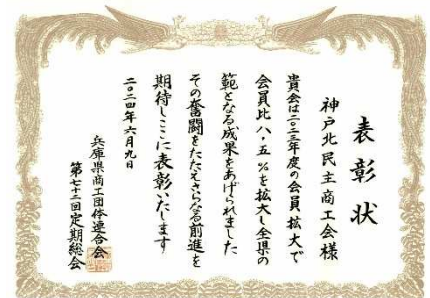 表彰状
神戸北民主商工会様
貴会は二〇二三年度の会員拡大で
会員比八・五%を拡大し全県の
範となる成果をあげられました
その奮闘をたたえさらなる前進を
期待しここに表彰いたします
二〇二四年六月九日
兵庫県商工団体連合会
第七十二回定期総会